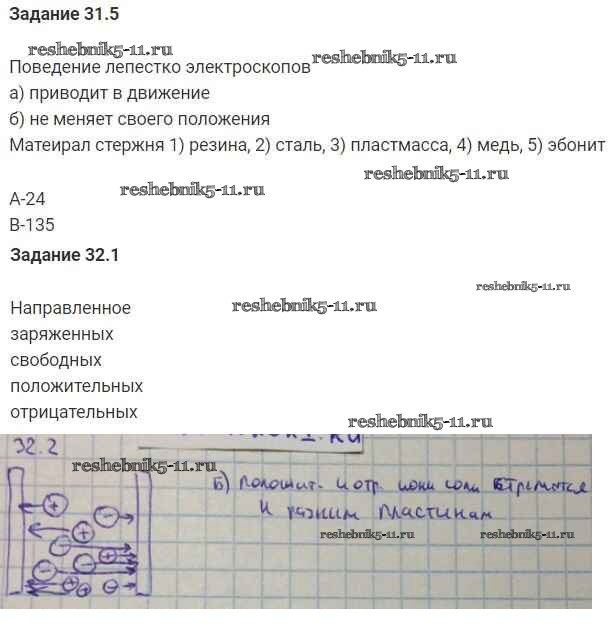 Задание 31.5
reshebnik5-11.ru
reshebnik5-11.ru
Поведение лепестко электроскопов
а) приводит в движение
б) не меняет своего положения
Матеирал стержня 1) резина, 2) сталь, 3) пластмасса, 4) медь, 5) эбонит
reshebnik5-11.ru
reshebnik5-11.ru
А-24
В-135
Задание 32.1
reshebnik5-11.ru
reshebnik5-11.ru
Направленное
заряженных
свободных
положительных
отрицательных
reshebnik5-11.ru
32.2
reshebnik5-11.ru
Б) полошит. и отр. иони соли стремится
к разним пластинам
reshebnik5-11.ru
reshebnik5-11.ru
+
-
+
-
+
-
+
-
+
+
-